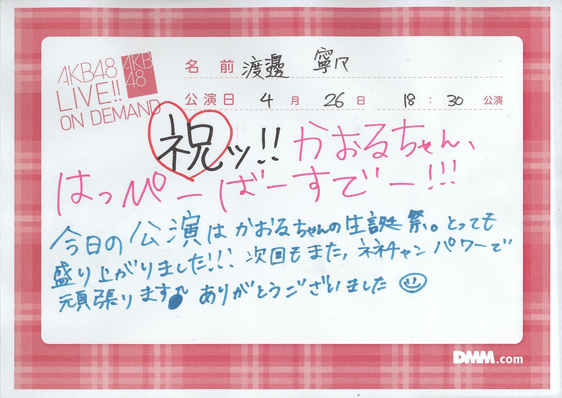 AKB48
LIVE!!
ON DEMAND
AKB
48
名前 渡邊 寧々
公演日 4月 26日 18:30 公演
祝ッ!! かおるちゃん、
はっぴーばーすでー!!!
今日の公演はかおるちゃんの生誕祭。とっても
盛り上がりました!!! 次回もまた、ネネチャンパワーで
頑張ります♪ ありがとうございました☺
DMM.com